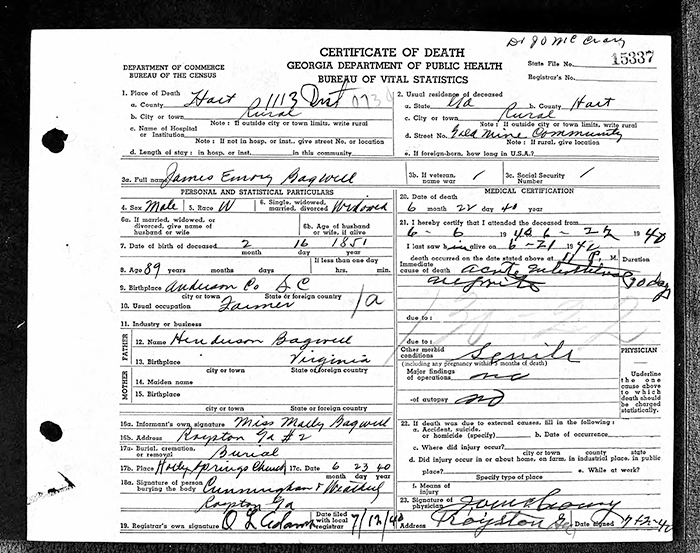 Dr J O McCrary
CERTIFICATE OF DEATH
GEORGIA DEPARTMENT OF PUBLIC HEALTH
BUREAU OF VITAL STATISTICS
DEPARTMENT OF COMMERCE
BUREAU OF THE CENSUS
State File No. 15337
Registrar's No.
1. Place of Death
a. County Hart 1113 Dist
b. City or town Rural
Note: If outside city or town limits, write rural
c. Name of Hospital
or Institution
Note: If not in hosp. or inst., give street No. or location
d. Length of stay: in hosp. or inst. in this community
2. Usual residence of deceased
a. State Ga b. County Hart
c. City or town Rural
Note: If outside city or town limits, write rural
d. Street No. Gold Mine Community
Note: If rural, give location
e. If foreign-born, how long in U.S.A.?
3a. Full name James Emory Bagwell
3b. If veteran, name war /
3c. Social Security No. /
PERSONAL AND STATISTICAL PARTICULARS
4. Sex Male 5. Race W 6. Single, widowed, married, divorced Widowed
6a. If married, widowed, or divorced, give name of husband or wife
6b. Age of husband or wife, if alive
7. Date of birth of deceased 2 16 1851
month day year
8. Age 89 years months days
If less than one day
hrs. min.
9. Birthplace Anderson Co S C
city or town State or foreign country
10. Usual occupation Farmer
11. Industry or business
FATHER
12. Name Henderson Bagwell
13. Birthplace Virginia
city or town State or foreign country
MOTHER
14. Maiden name
15. Birthplace
city or town State or foreign country
16a. Informant's own signature Miss Bagwell
16b. Address Royston Ga #2
17a. Burial, cremation, or removal Burial
17b. Place Holly Springs Church 17c. Date 6 23 40
month day year
18a. Signature of person burying the body Cunningham &
Royston Ga
19. Registrar's own signature O L Adams
Date filed with local registrar 7/12/40
MEDICAL CERTIFICATION
20. Date of death
6 22 day 40 year
month
21. I hereby certify that I attended the deceased from
6-6 1940 6-22 1940
I last saw him alive on 6-21 1940
death occurred on the date stated above at 11 P. M.
Duration
Immediate cause of death acute interstitial
nephritis
10 days
due to:
due to:
Other morbid conditions Senile
(including any pregnancy within 3 months of death)
Major findings of operations no
-of autopsy no
PHYSICIAN
Underline the one cause above to which death should be charged statistically.
22. If death was due to external causes, fill in the following:
a. Accident, suicide, or homicide (specify) b. Date of occurrence
c. Where did injury occur?
city or town county state
d. Did injury occur in or about home, on farm, in industrial place, in public
place? e. While at work?
Specify type of place
f. Means of injury
23. Signature of physician J O McCrary
Address Royston Ga Date signed 7-2-40